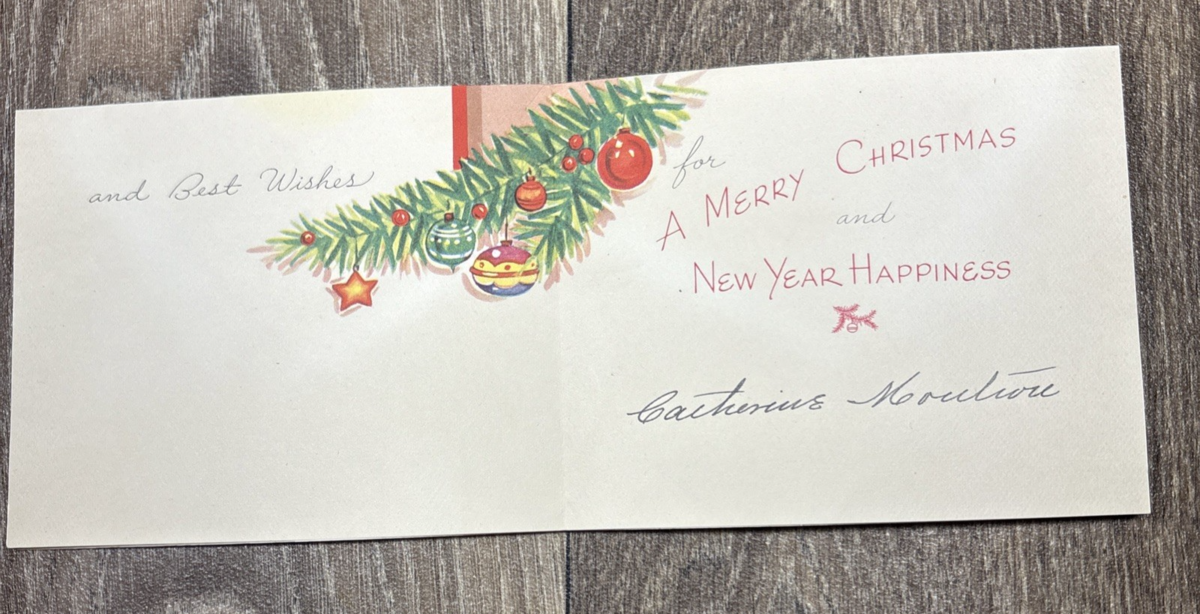 and Best Wishes
for
A MERRY CHRISTMAS
and
NEW YEAR HAPPINESS
Catherine